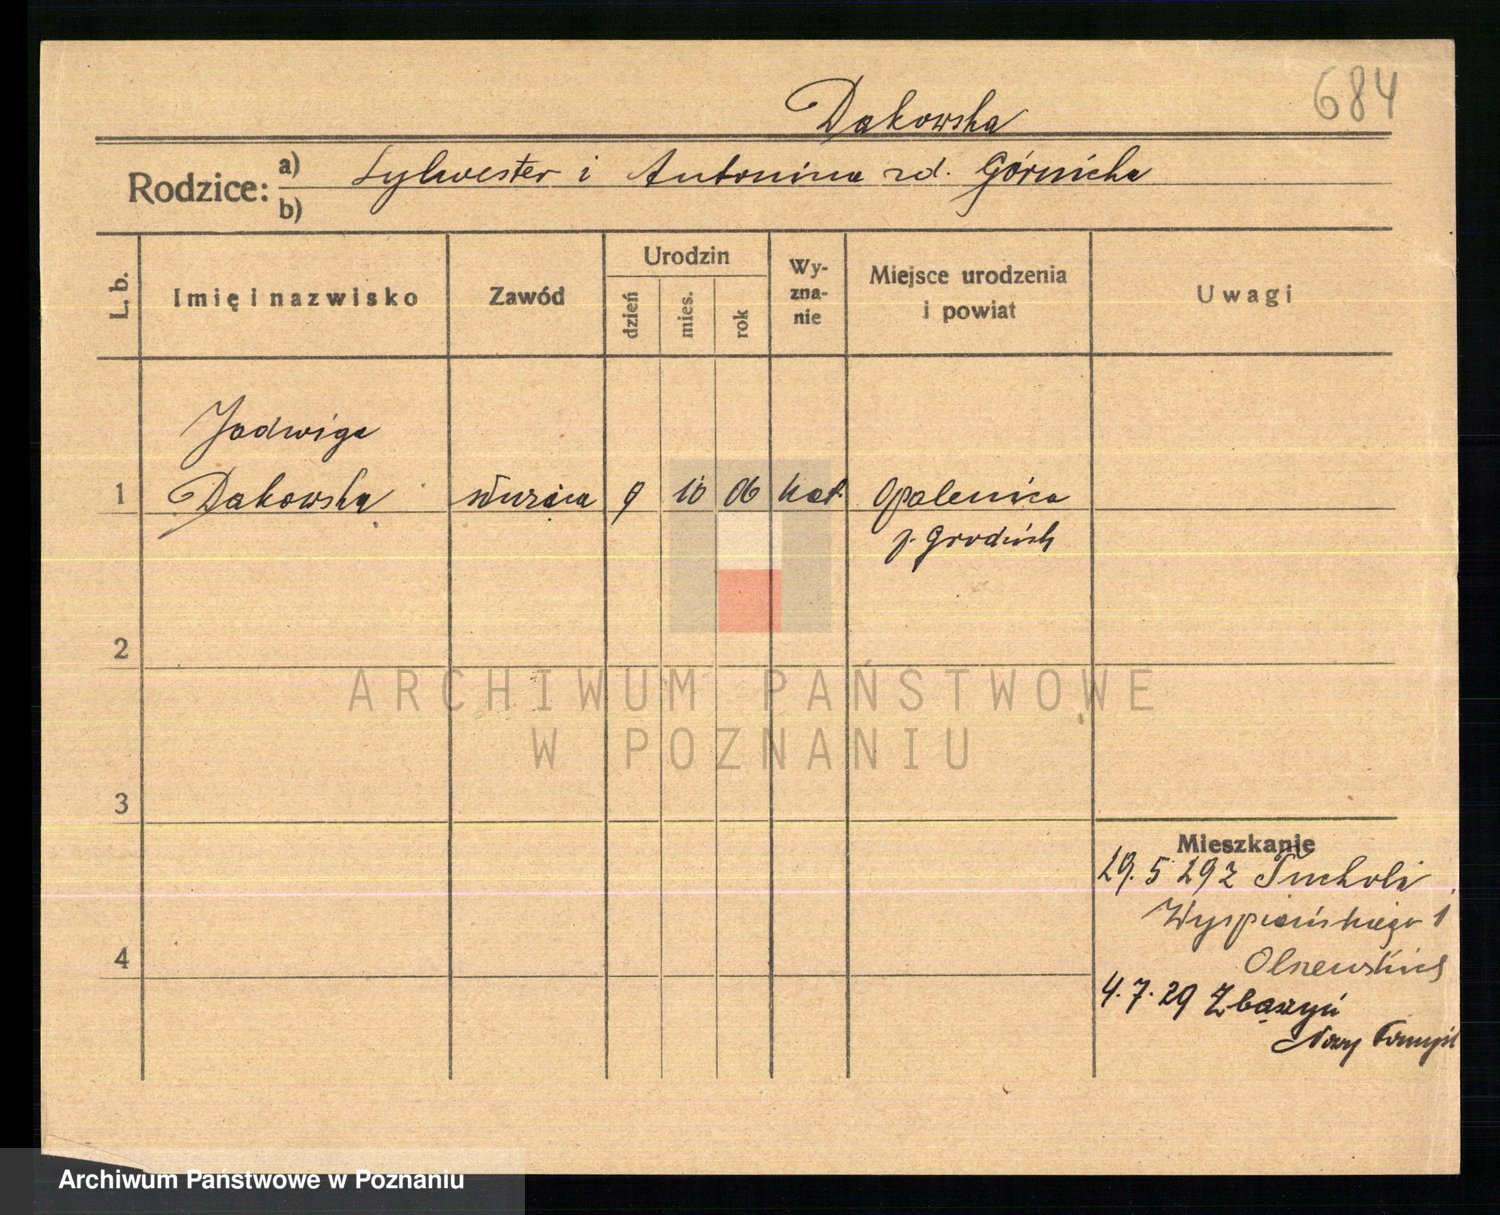 684
Dakowska
Rodzice: a) Sylwester i Antonina zd. Górnicka
b)
L. b.
Imię i nazwisko
Zawód
Urodzin
dzień
mies.
rok
Wy-
zna-
nie
Miejsce urodzenia
i powiat
Uwagi
Jadwiga
1 Dakowska służąca 9 10 06 kat. Opalenica
p. Grodzisk
2
ARCHIWUM PAŃSTWOWE
W POZNANIU
3
Mieszkanie
29. 5 29 z Tucholi
Wyspiańskiego 1
4
4. 7. 29 Zbąszyń
Nowy Tomyśl
Archiwum Państwowe w Poznaniu